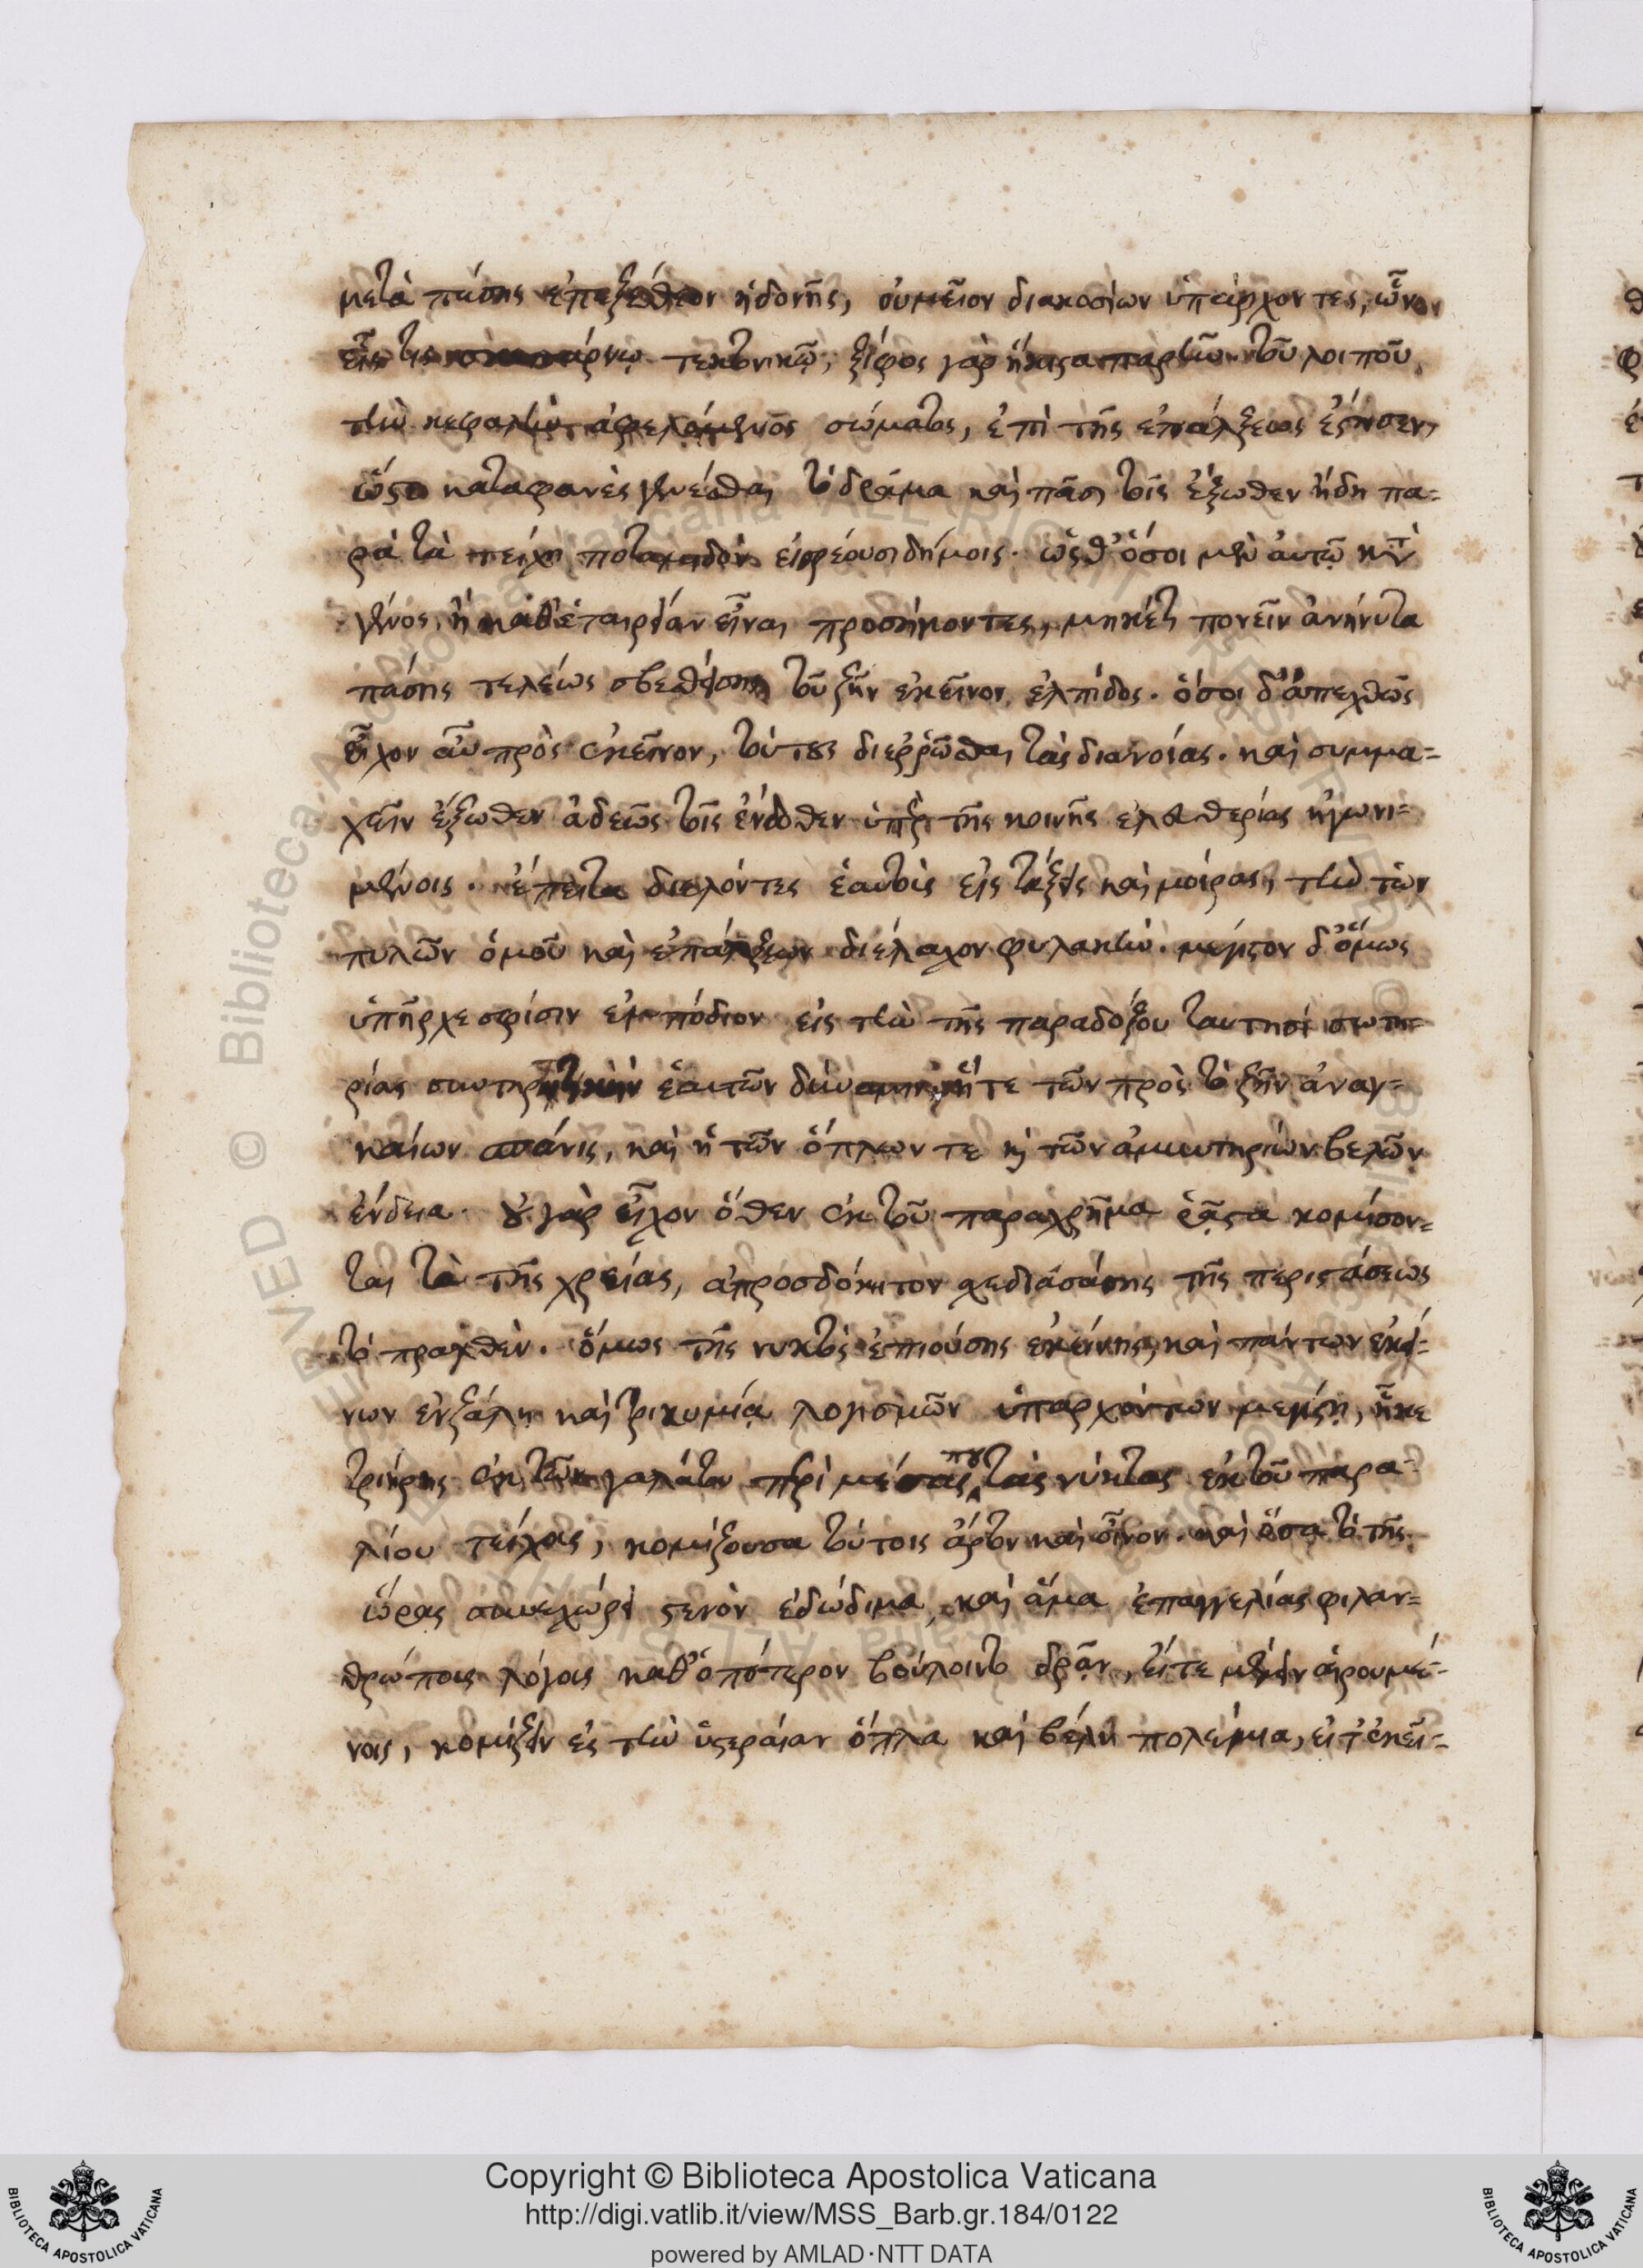 μετὰ πάσης ἐπεξῆλθον ἡδονῆς, οὐ μεῖον διακοσίων ὑπάρχοντες, ὧν
εἷς τις σκεπάρνῳ τεκτονικῷ, ξίφος γὰρ ἥκιστα παρῆν τοῦ λοιποῦ
τὴν κεφαλὴν ἀφελόμενος σώματος, ἐπὶ τῆς ἐπάλξεως ἔστησεν,
ὥστε καταφανὲς γενέσθαι τὸ δρᾶμα καὶ πᾶσι τοῖς ἔξωθεν ἤδη πα-
ρὰ τὰ τείχη ποταμηδὸν εἰσρέουσι δήμοις. ὥσθ' ὅσοι μὲν αὐτῷ κατὰ
γένος, ἢ καθ' ἑταιρίαν εἶναι προσήκοντες, μηκέτι πονεῖν ἀνήνυτα
πάσης τελέως σβεσθείσης τοῦ ζῆν ἐκεῖνον ἐλπίδος. ὅσοι δ' ἀπεχθῶς
εἶχον αὖ πρὸς ἐκεῖνον, τούτους διερρῶσθαι τὰς διανοίας. καὶ συμμα-
χεῖν ἔξωθεν ἀδεῶς τοῖς ἔνδοθεν ὑπὲρ τῆς κοινῆς ἐλευθερίας ἠγωνι-
μένοις. ἔπειτα διελόντες ἑαυτοὺς εἰς τάξεις καὶ μοίρας, τὴν τῶν
πυλῶν ὁμοῦ καὶ ἐπάλξεων διέλαχον φυλακήν. μέγιστον δ' ὅμως
ὑπῆρχε σφίσιν ἐμπόδιον εἰς τὴν τῆς παραδόξου ταυτησὶ σωτη-
ρίας συντηρητικὴν ἑαυτῶν δύναμιν, ἥ τε τῶν πρὸς τὸ ζῆν ἀναγ-
καίων σπάνις, καὶ ἡ τῶν ὅπλων τε καὶ τῶν ἀμυντηρίων βελῶν
ἔνδεια. οὐ γὰρ εἶχον ὅθεν ἐκ τοῦ παραχρῆμα ῥᾷστα κομίσον-
ται τὰ τῆς χρείας, ἀπροσδόκητον σχεδιασάσης τῆς περιστάσεως
τὸ πραχθέν. ὅμως τῆς νυκτὸς ἐπιούσης ἐκείνης, καὶ πάντων ἐκεί-
νων ἐν ζάλῃ καὶ τρικυμίᾳ λογισμῶν ὑπαρχόντων μεγίστῃ, ἧκε
τριήρης ἐκ τῶν γαλάτου περὶ μέσας που τὰς νύκτας ἐκ τοῦ παρα-
λίου τείχους, κομίζουσα τούτοις ἄρτον καὶ οἶνον. καὶ ὅσα τὸ τῆς
ὥρας συνεχώρει στενὸν ἐδώδιμα, καὶ ἅμα ἐπαγγελίας φιλαν-
θρώποις λόγοις καθ' ὁπότερον βούλοιντο δρᾶν, εἴτε μένειν αἱρουμέ-
νοις, κομίζειν ἐς τὴν ὑστεραίαν ὅπλα καὶ βέλη πολέμια, εἴτ' ἐκεῖ-
Copyright © Biblioteca Apostolica Vaticana
http://digi.vatlib.it/view/MSS_Barb.gr.184/0122
powered by AMLAD·NTT DATA
BIBLIOTECA APOSTOLICA VATICANA
BIBLIOTECA APOSTOLICA VATICANA